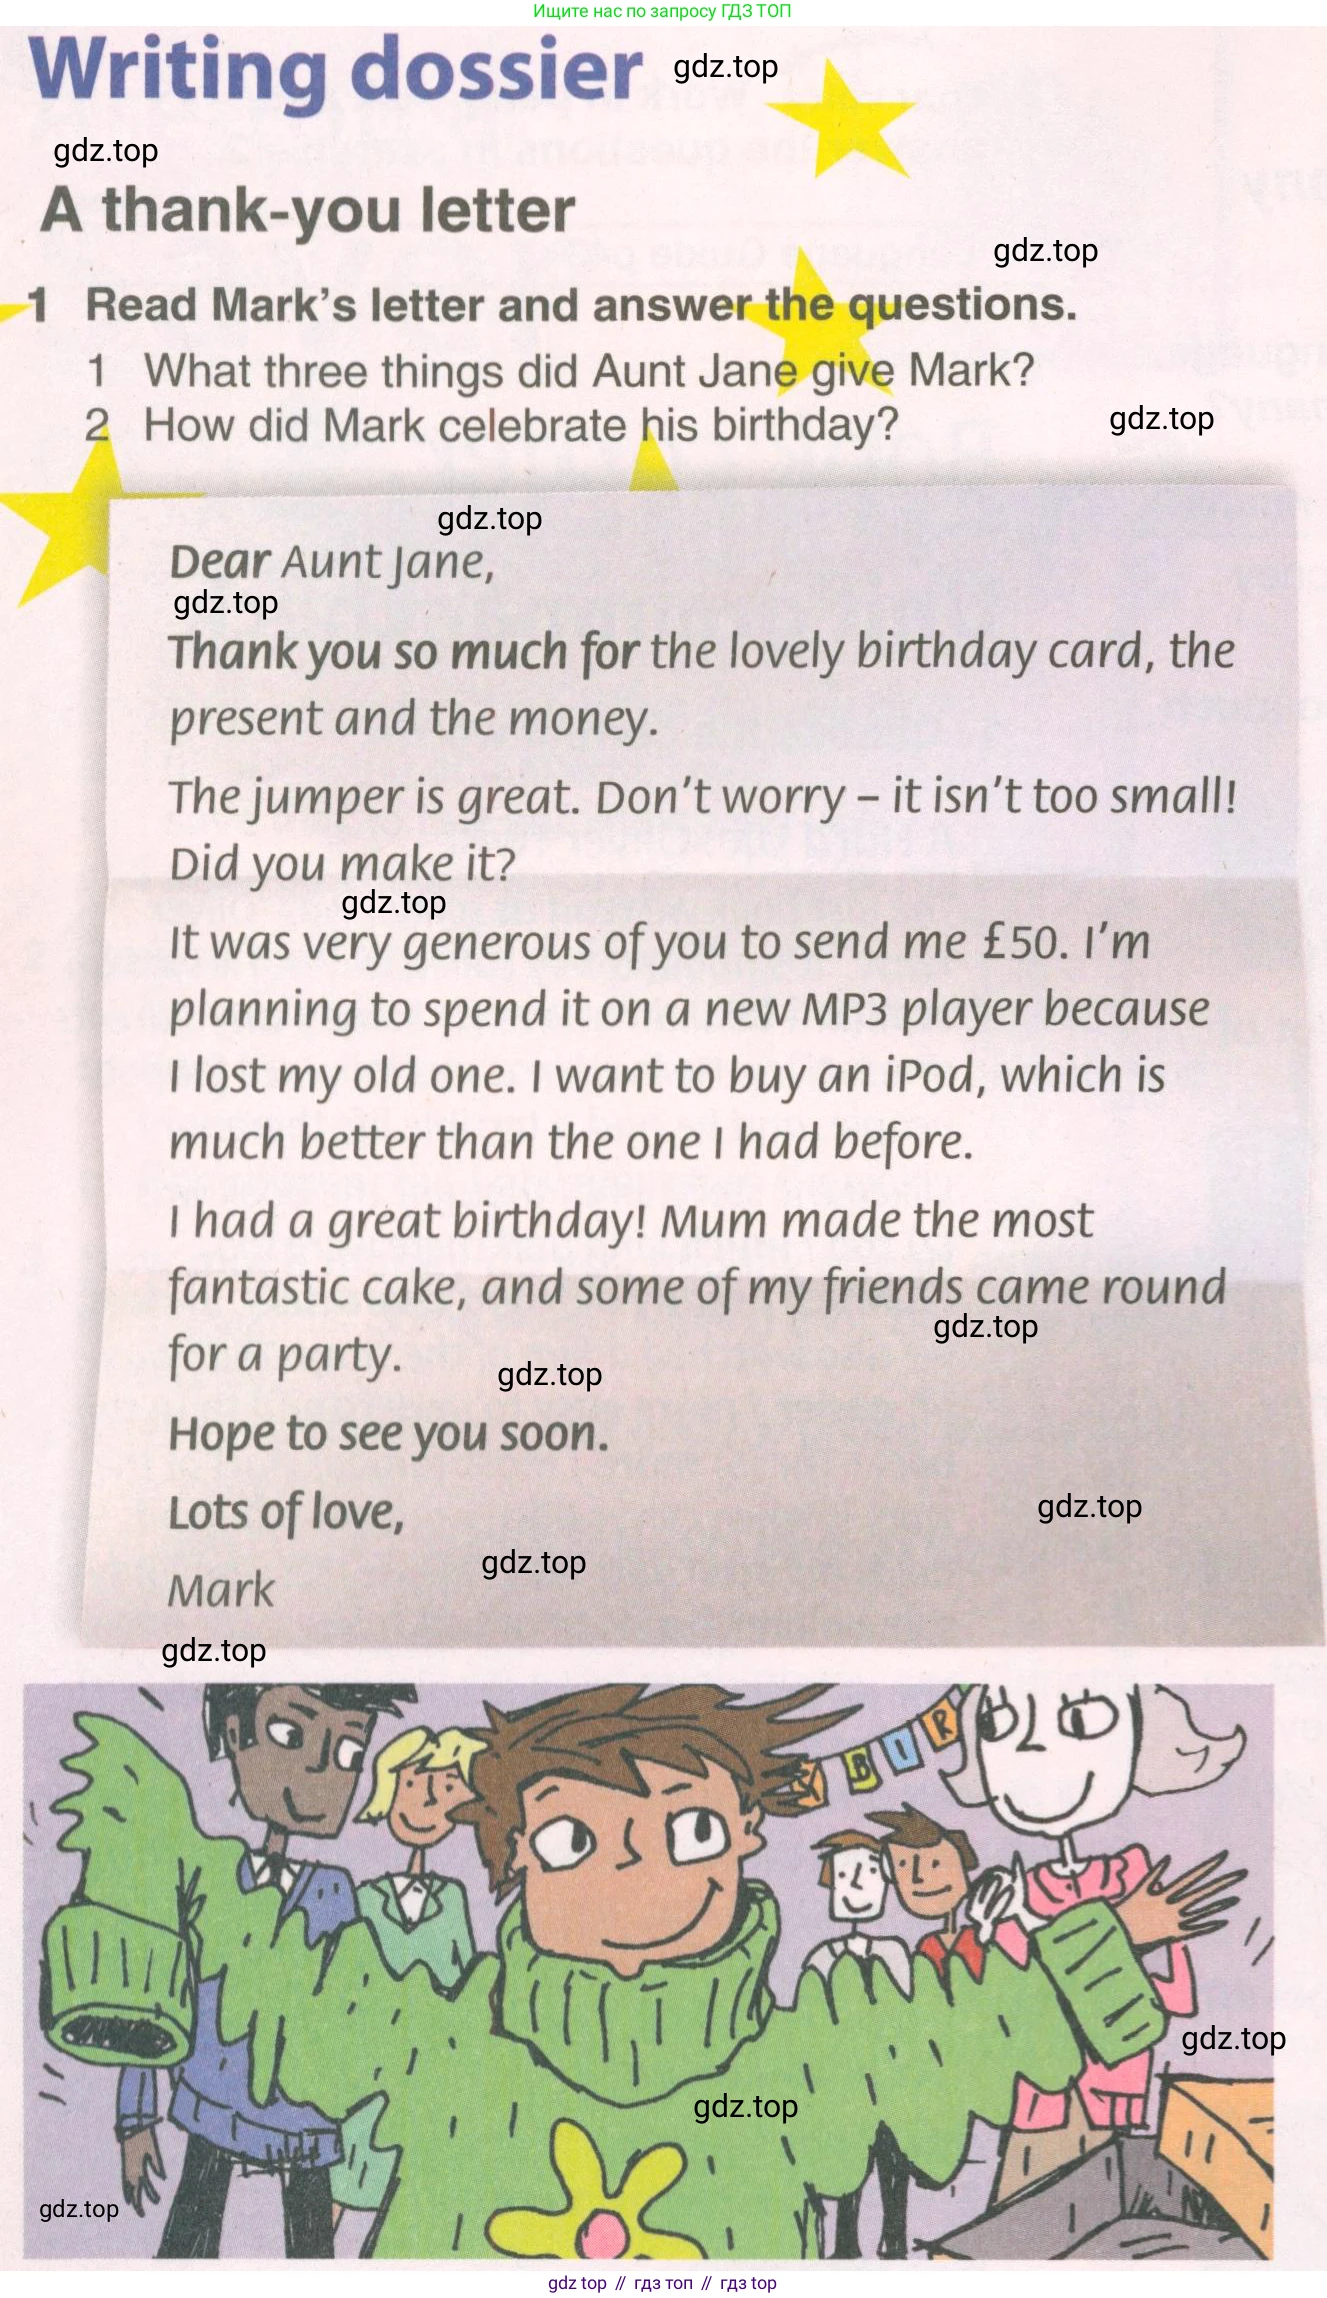 Ищите нас по запросу ГДЗ ТОП
Writing dossier
gdz.top
gdz.top
A thank-you letter
gdz.top
1 Read Mark's letter and answer the questions.
1 What three things did Aunt Jane give Mark?
2 How did Mark celebrate his birthday?
gdz.top
gdz.top
Dear Aunt Jane,
gdz.top
Thank you so much for the lovely birthday card, the
present and the money.
The jumper is great. Don't worry – it isn't too small!
Did you make it?
gdz.top
It was very generous of you to send me £50. I'm
planning to spend it on a new MP3 player because
I lost my old one. I want to buy an iPod, which is
much better than the one I had before.
I had a great birthday! Mum made the most
fantastic cake, and some of my friends came round
gdz.top
for a party.
gdz.top
Hope to see you soon.
Lots of love,
gdz.top
gdz.top
Mark
gdz.top
B I R
gdz.top
gdz.top
gdz.top
gdz top // гдз топ // гдз top